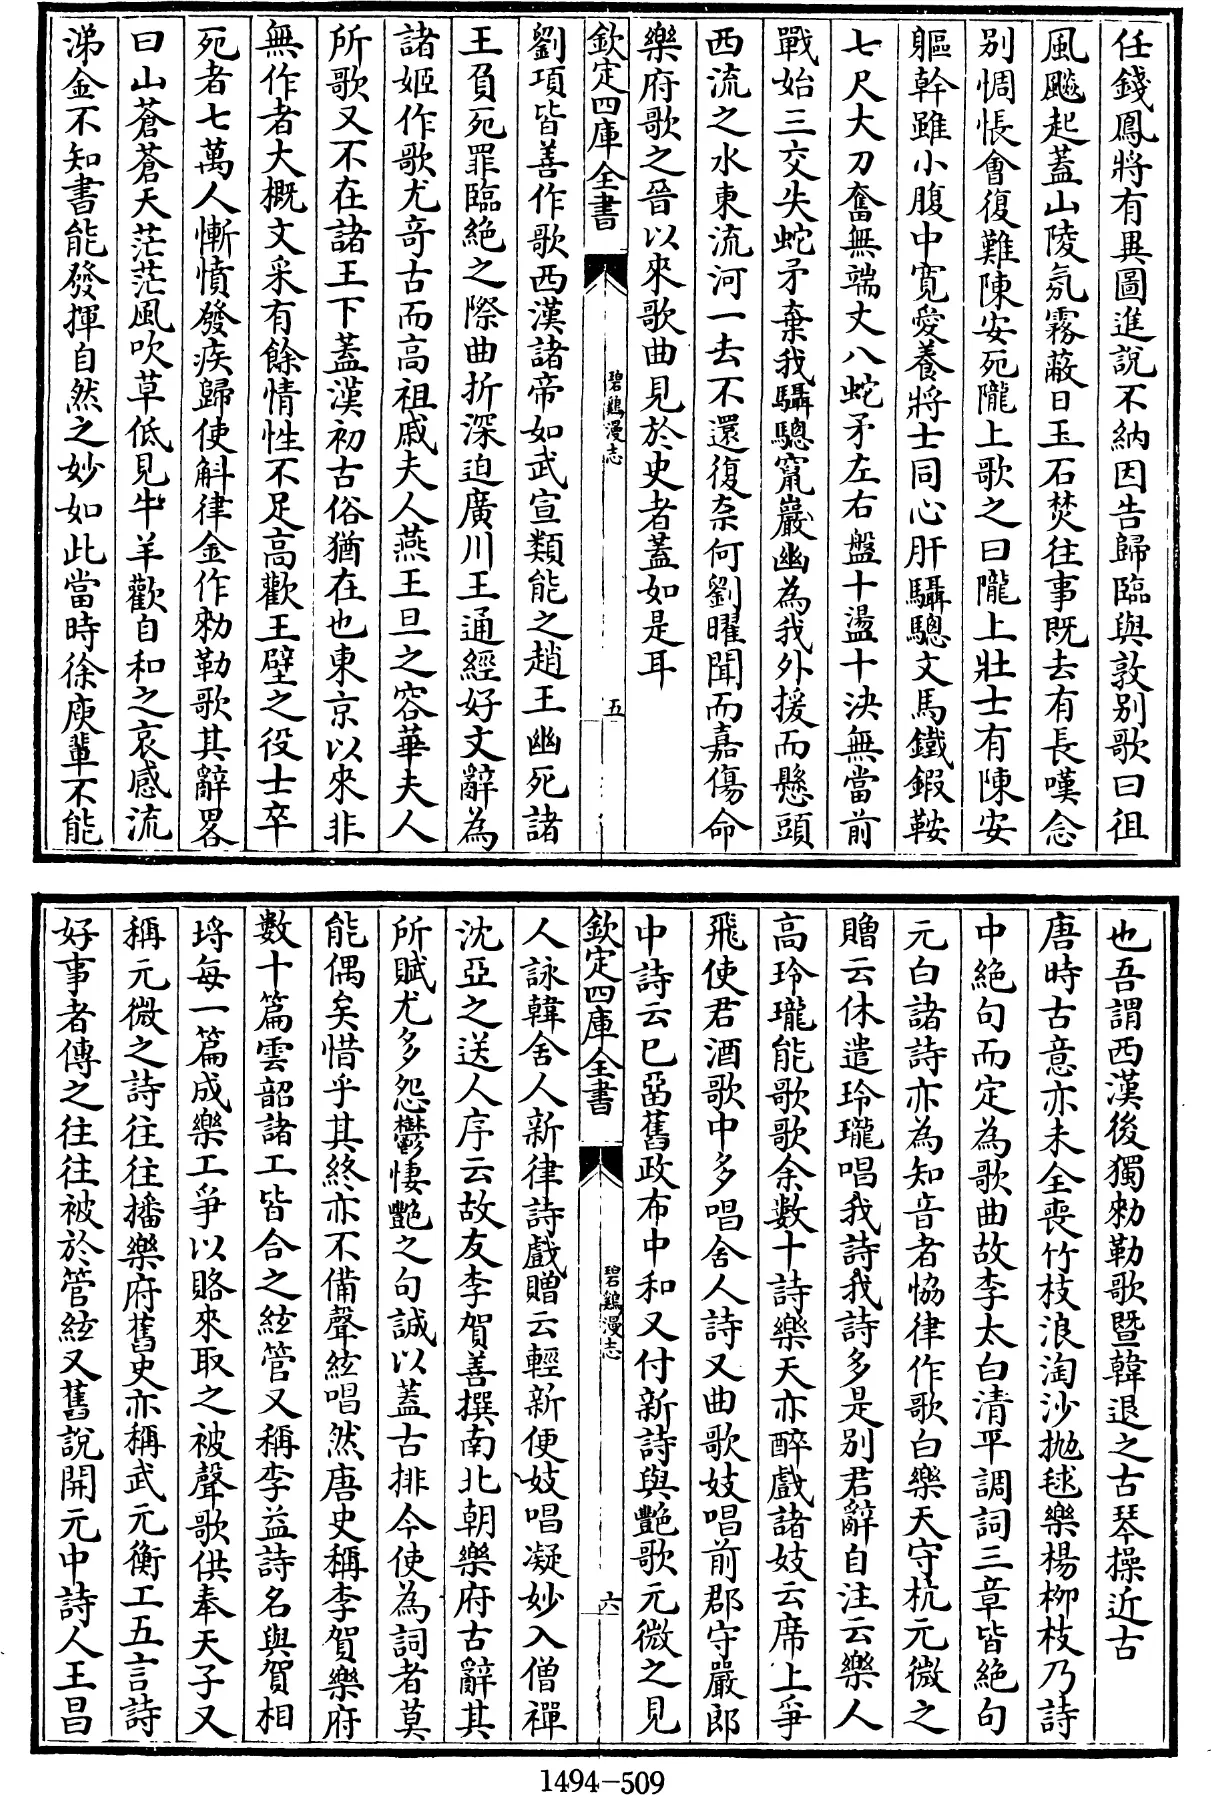 任錢鳳將有異圖進說不納因告歸臨與敦别歌曰徂
風飈起蓋山陵氛霧蔽日玉石焚往事既去有長嘆念
别惆悵會復難陳安死隴上歌之曰隴上壯士有陳安
軀幹雖小腹中寬愛養將士同心肝驌驄文馬鐵鍜鞍
七尺大刀奮無端丈八蛇矛左右盤十盪十決無當前
戰始三交失蛇矛棄我驌驄竄巖幽為我外援而懸頭
西流之水東流河一去不還復柰何劉曜聞而嘉傷命
樂府歌之晉以來歌曲見於史者蓋如是耳
欽定四庫全書
碧鷄漫志
五
劉項皆善作歌西漢諸帝如武宣類能之趙王幽死諸
王負死罪臨絶之際曲折深迫廣川王通經好文辭為
諸姬作歌尤奇古而高祖戚夫人燕王旦之容華夫人
所歌又不在諸王下蓋漢初古俗猶在也東京以來非
無作者大概文采有餘情性不足高歡王壁之役士卒
死者七萬人慚憤發疾歸使斛律金作勑勒歌其辭畧
曰山蒼蒼天茫茫風吹草低見牛羊歡自和之哀感流
涕金不知書能發揮自然之妙如此當時徐庾輩不能
也吾謂西漢後獨勑勒歌暨韓退之古琴操近古
唐時古意亦未全喪竹枝浪淘沙抛毬樂楊柳枝乃詩
中絶句而定為歌曲故李太白清平調詞三章皆絶句
元白諸詩亦為知音者協律作歌白樂天守杭元微之
贈云休遣玲瓏唱我詩我詩多是别君辭自注云樂人
高玲瓏能歌歌余數十詩樂天亦醉戲諸妓云席上爭
飛使君酒歌中多唱舍人詩又曲歌妓唱前郡守嚴郎
中詩云已畱舊政布中和又付新詩與艷歌元微之見
欽定四庫全書
碧鷄漫志
六
人詠韓舍人新律詩戲贈云輕新便妓唱凝妙入僧禪
沈亞之送人序云故友李賀善撰南北朝樂府古辭其
所賦尤多怨鬱悽艷之句誠以蓋古排今使為詞者莫
能偶矣惜乎其終亦不備聲絃唱然唐史稱李賀樂府
數十篇雲韶諸工皆合之絃管又稱李益詩名與賀相
埒每一篇成樂工爭以賂來取之被聲歌供奉天子又
稱元微之詩往往播樂府舊史亦稱武元衡工五言詩
好事者傳之往往被於管絃又舊說開元中詩人王昌
1494-509